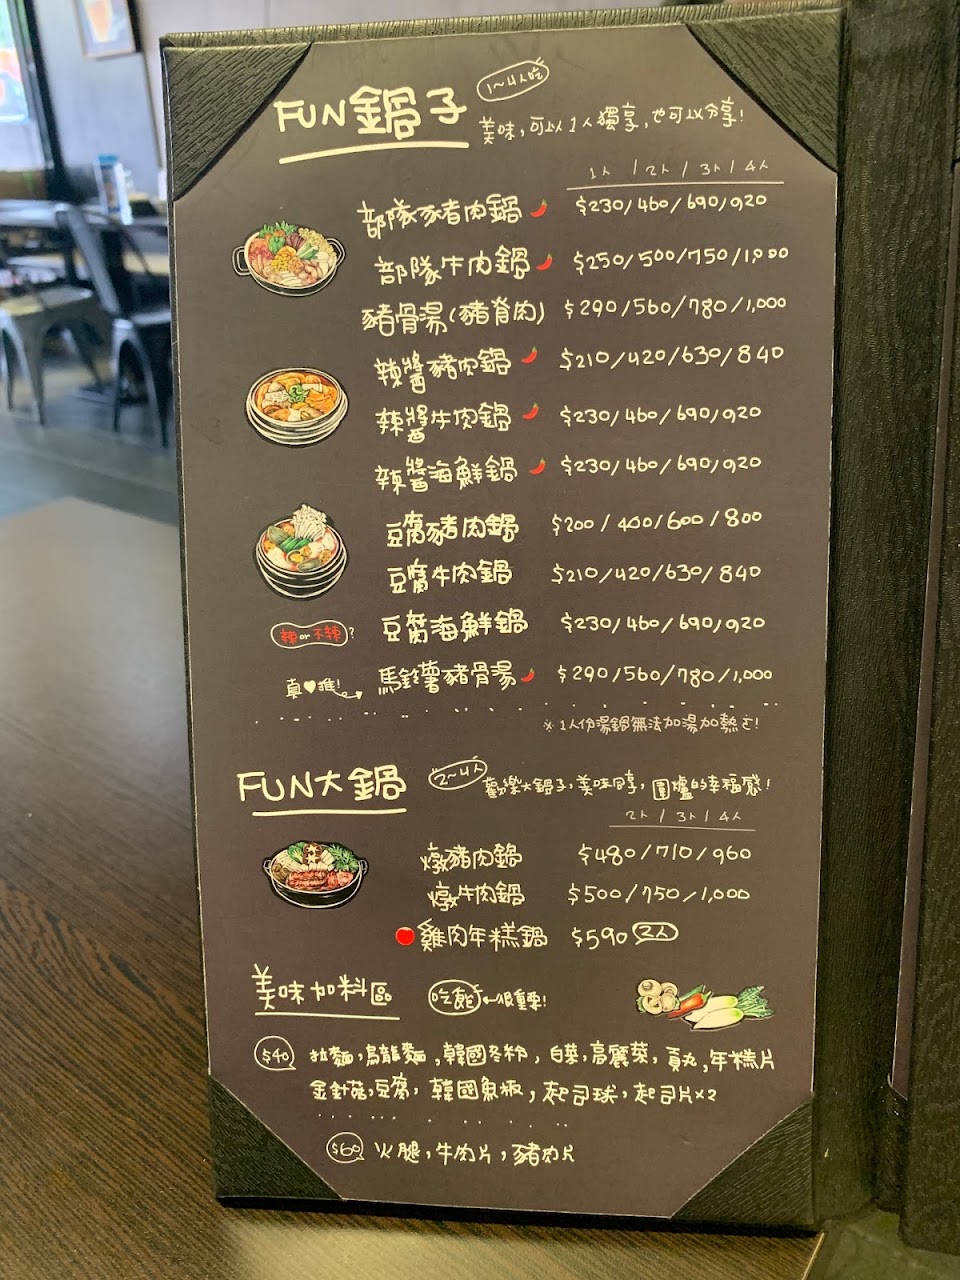 FUN鍋子 1~4人吃
美味,可以1人獨享,也可以分享!
1人 / 2人 / 3人 / 4人
部隊豬肉鍋 $230/460/690/920
部隊牛肉鍋 $250/500/750/1,000
豬骨湯(豬脊肉) $290/560/780/1,000
辣醬豬肉鍋 $210/420/630/840
辣醬牛肉鍋 $230/460/690/920
辣醬海鮮鍋 $230/460/690/920
豆腐豬肉鍋 $200/400/600/800
豆腐牛肉鍋 $210/420/630/840
辣or不辣? 豆腐海鮮鍋 $230/460/690/920
真♥推! 馬鈴薯豬骨湯 $290/560/780/1,000
※1人份湯鍋無法加湯加熱之!
FUN大鍋 2~4人
歡樂大鍋子,美味同享,圍爐的幸福感!
2人 / 3人 / 4人
燉豬肉鍋 $480/710/960
燉牛肉鍋 $500/750/1,000
雞肉年糕鍋 $590 2人
美味加料區 吃飽←很重要!
$40 拉麵,烏龍麵,韓國冬粉,白菜,高麗菜,貢丸,年糕片
金針菇,豆腐,韓國魚板,起司球,起司片x2
$60 火腿,牛肉片,豬肉片